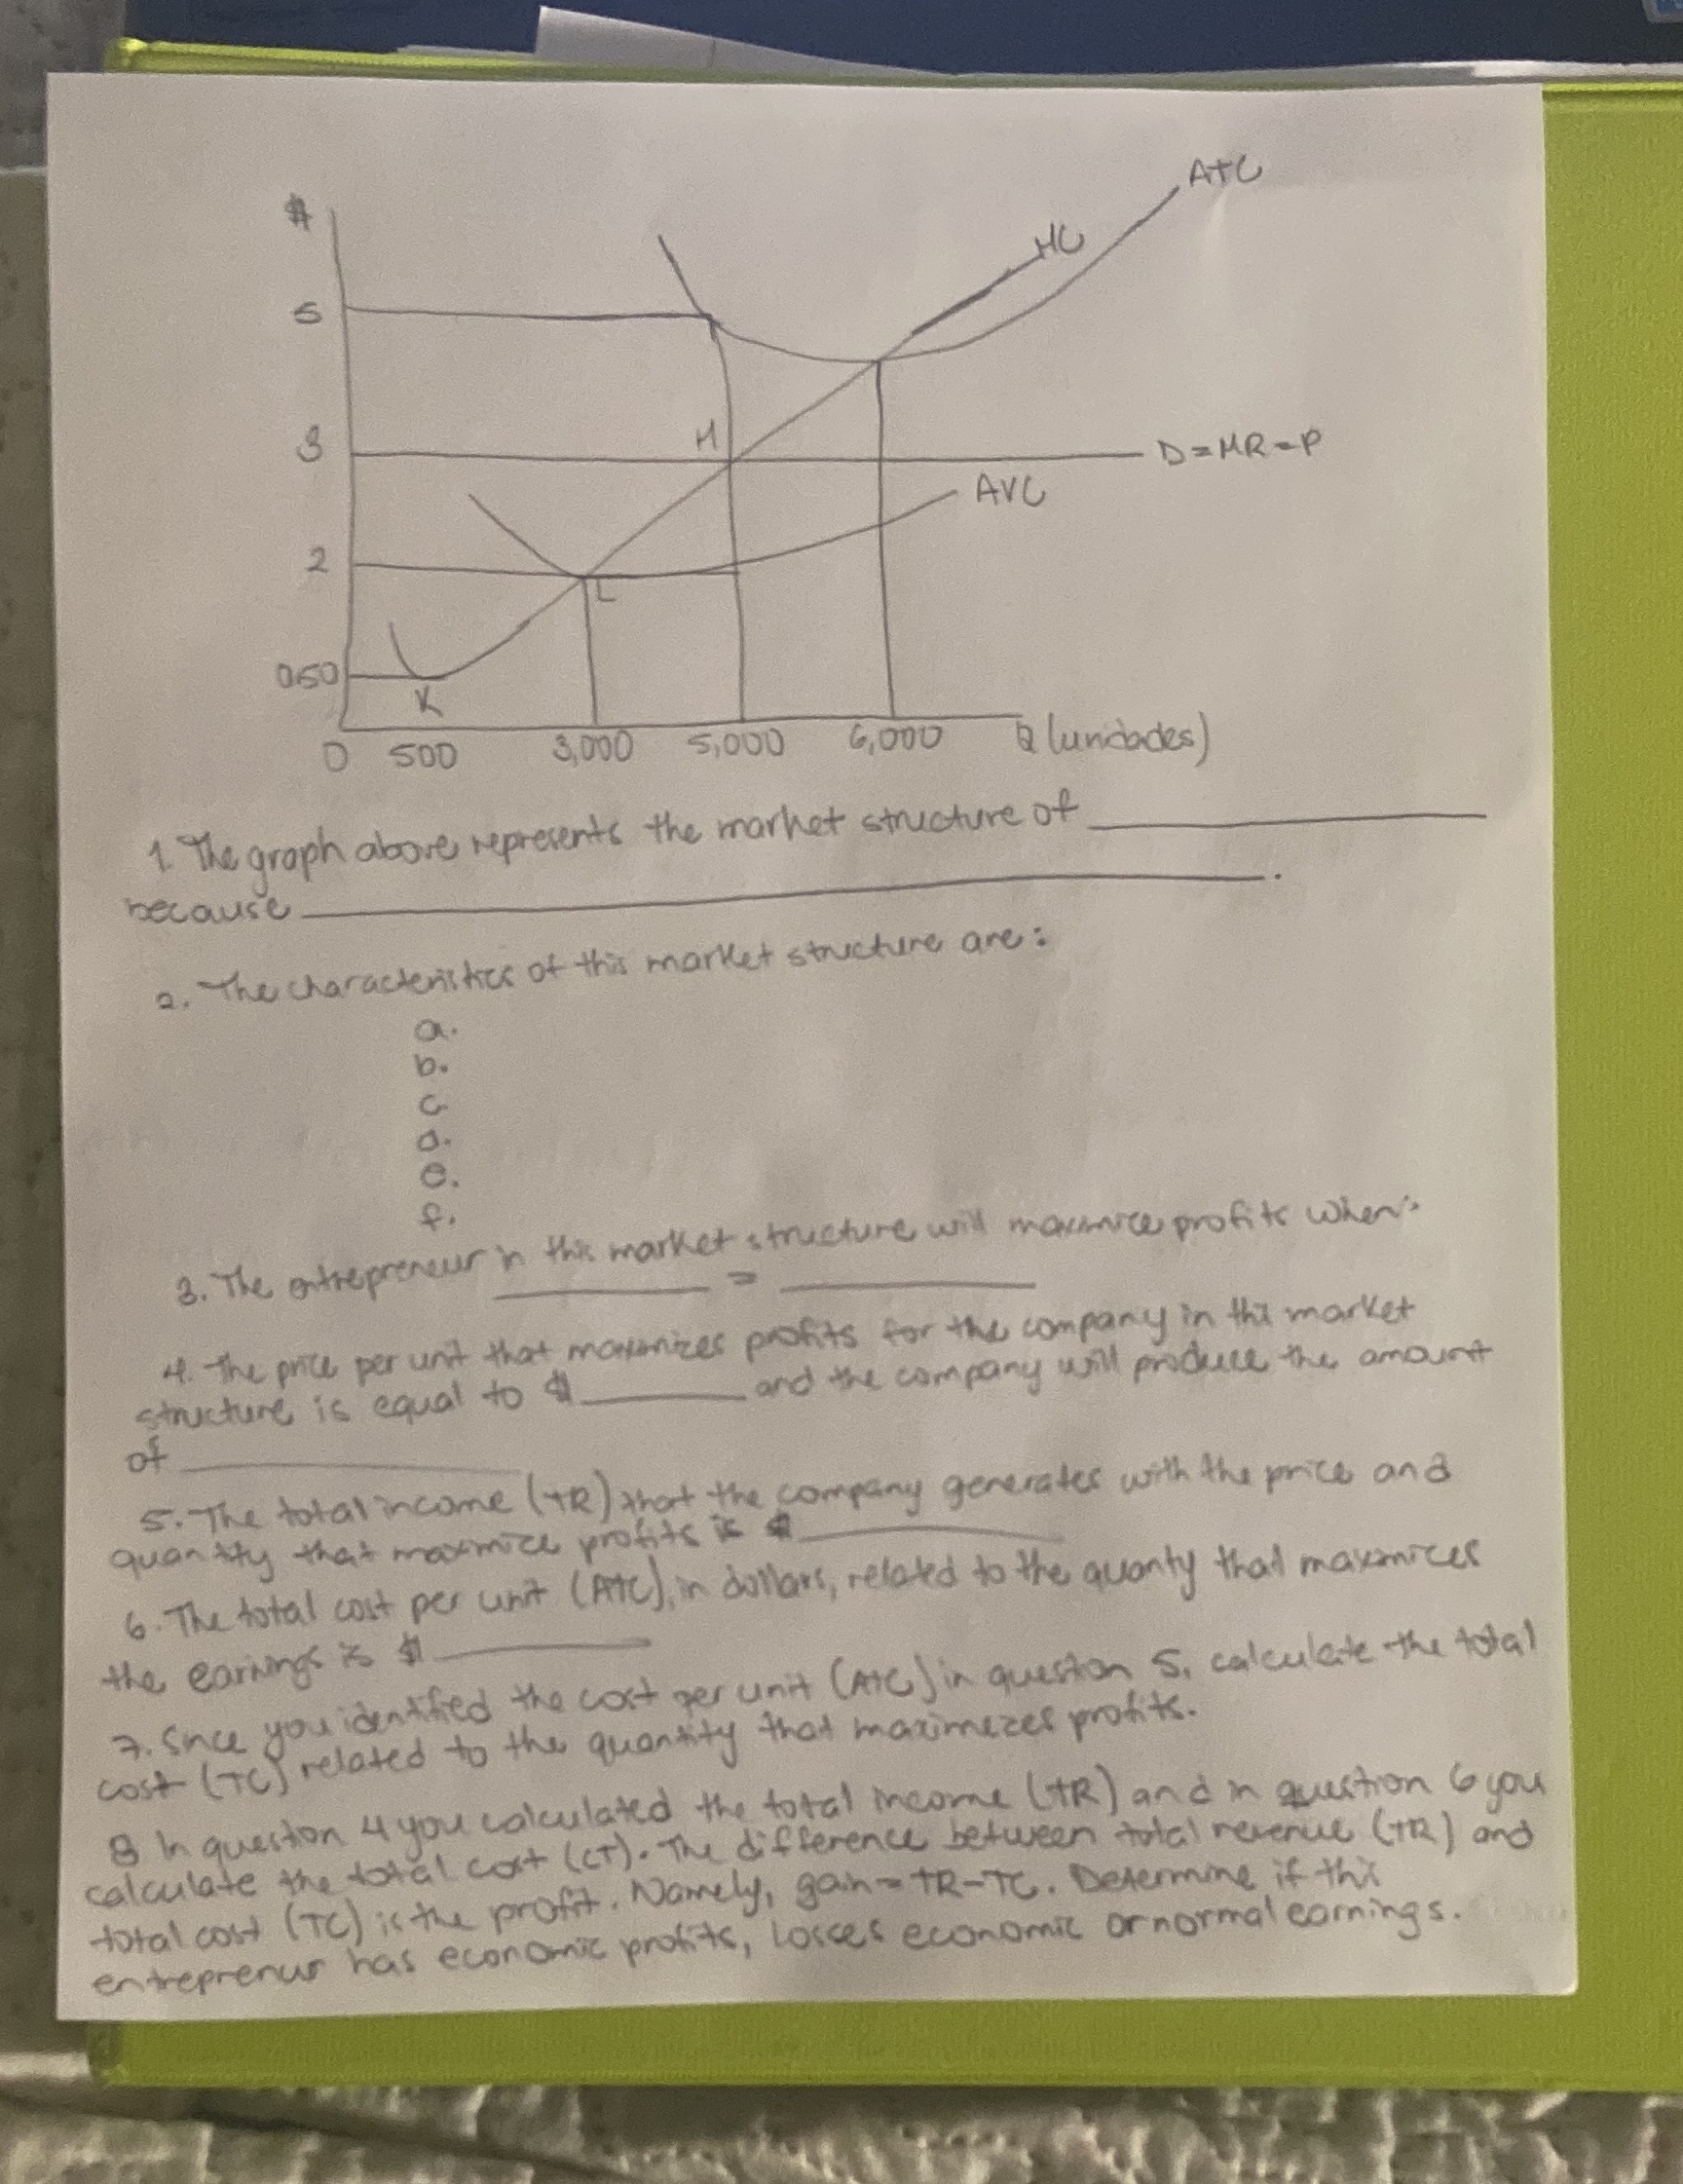 $
ATC
MC
5
3
M
D=MR=P
AVC
2
L
0.50
K
0 500 3,000 5,000 6,000 Q (unidades)
1. The graph above represents the market structure of
because .
2. The characteristics of this market structure are:
a.
b.
c.
d.
e.
f.
3. The entrepreneur in this market structure will maximice profits when:
=
4. The price per unit that maximizes profits for the company in this market
structure is equal to $ and the company will produce the amount
of
5. The total income (TR) that the company generates with the price and
quantity that maximice profits is $
6. The total cost per unit (ATC), in dollars, related to the quanty that maximices
the earnings is $
7. Since you identified the cost per unit (ATC) in question 5, calculate the total
cost (TC) related to the quantity that maximezes profits.
8 In question 4 you calculated the total income (TR) and in question 6 you
calculate the total cost (CT). The difference between total revenue (TR) and
total cost (TC) is the profit. Namely, gain = TR-TC. Determine if this
entreprenur has economic profits, losses economic or normal earnings.